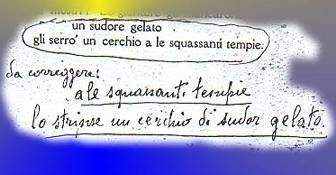 un sudore gelato
gli serro' un cerchio a le squassanti tempie.
da correggere:
a le squassanti tempie
lo strinse un cerchio di sudor gelato.